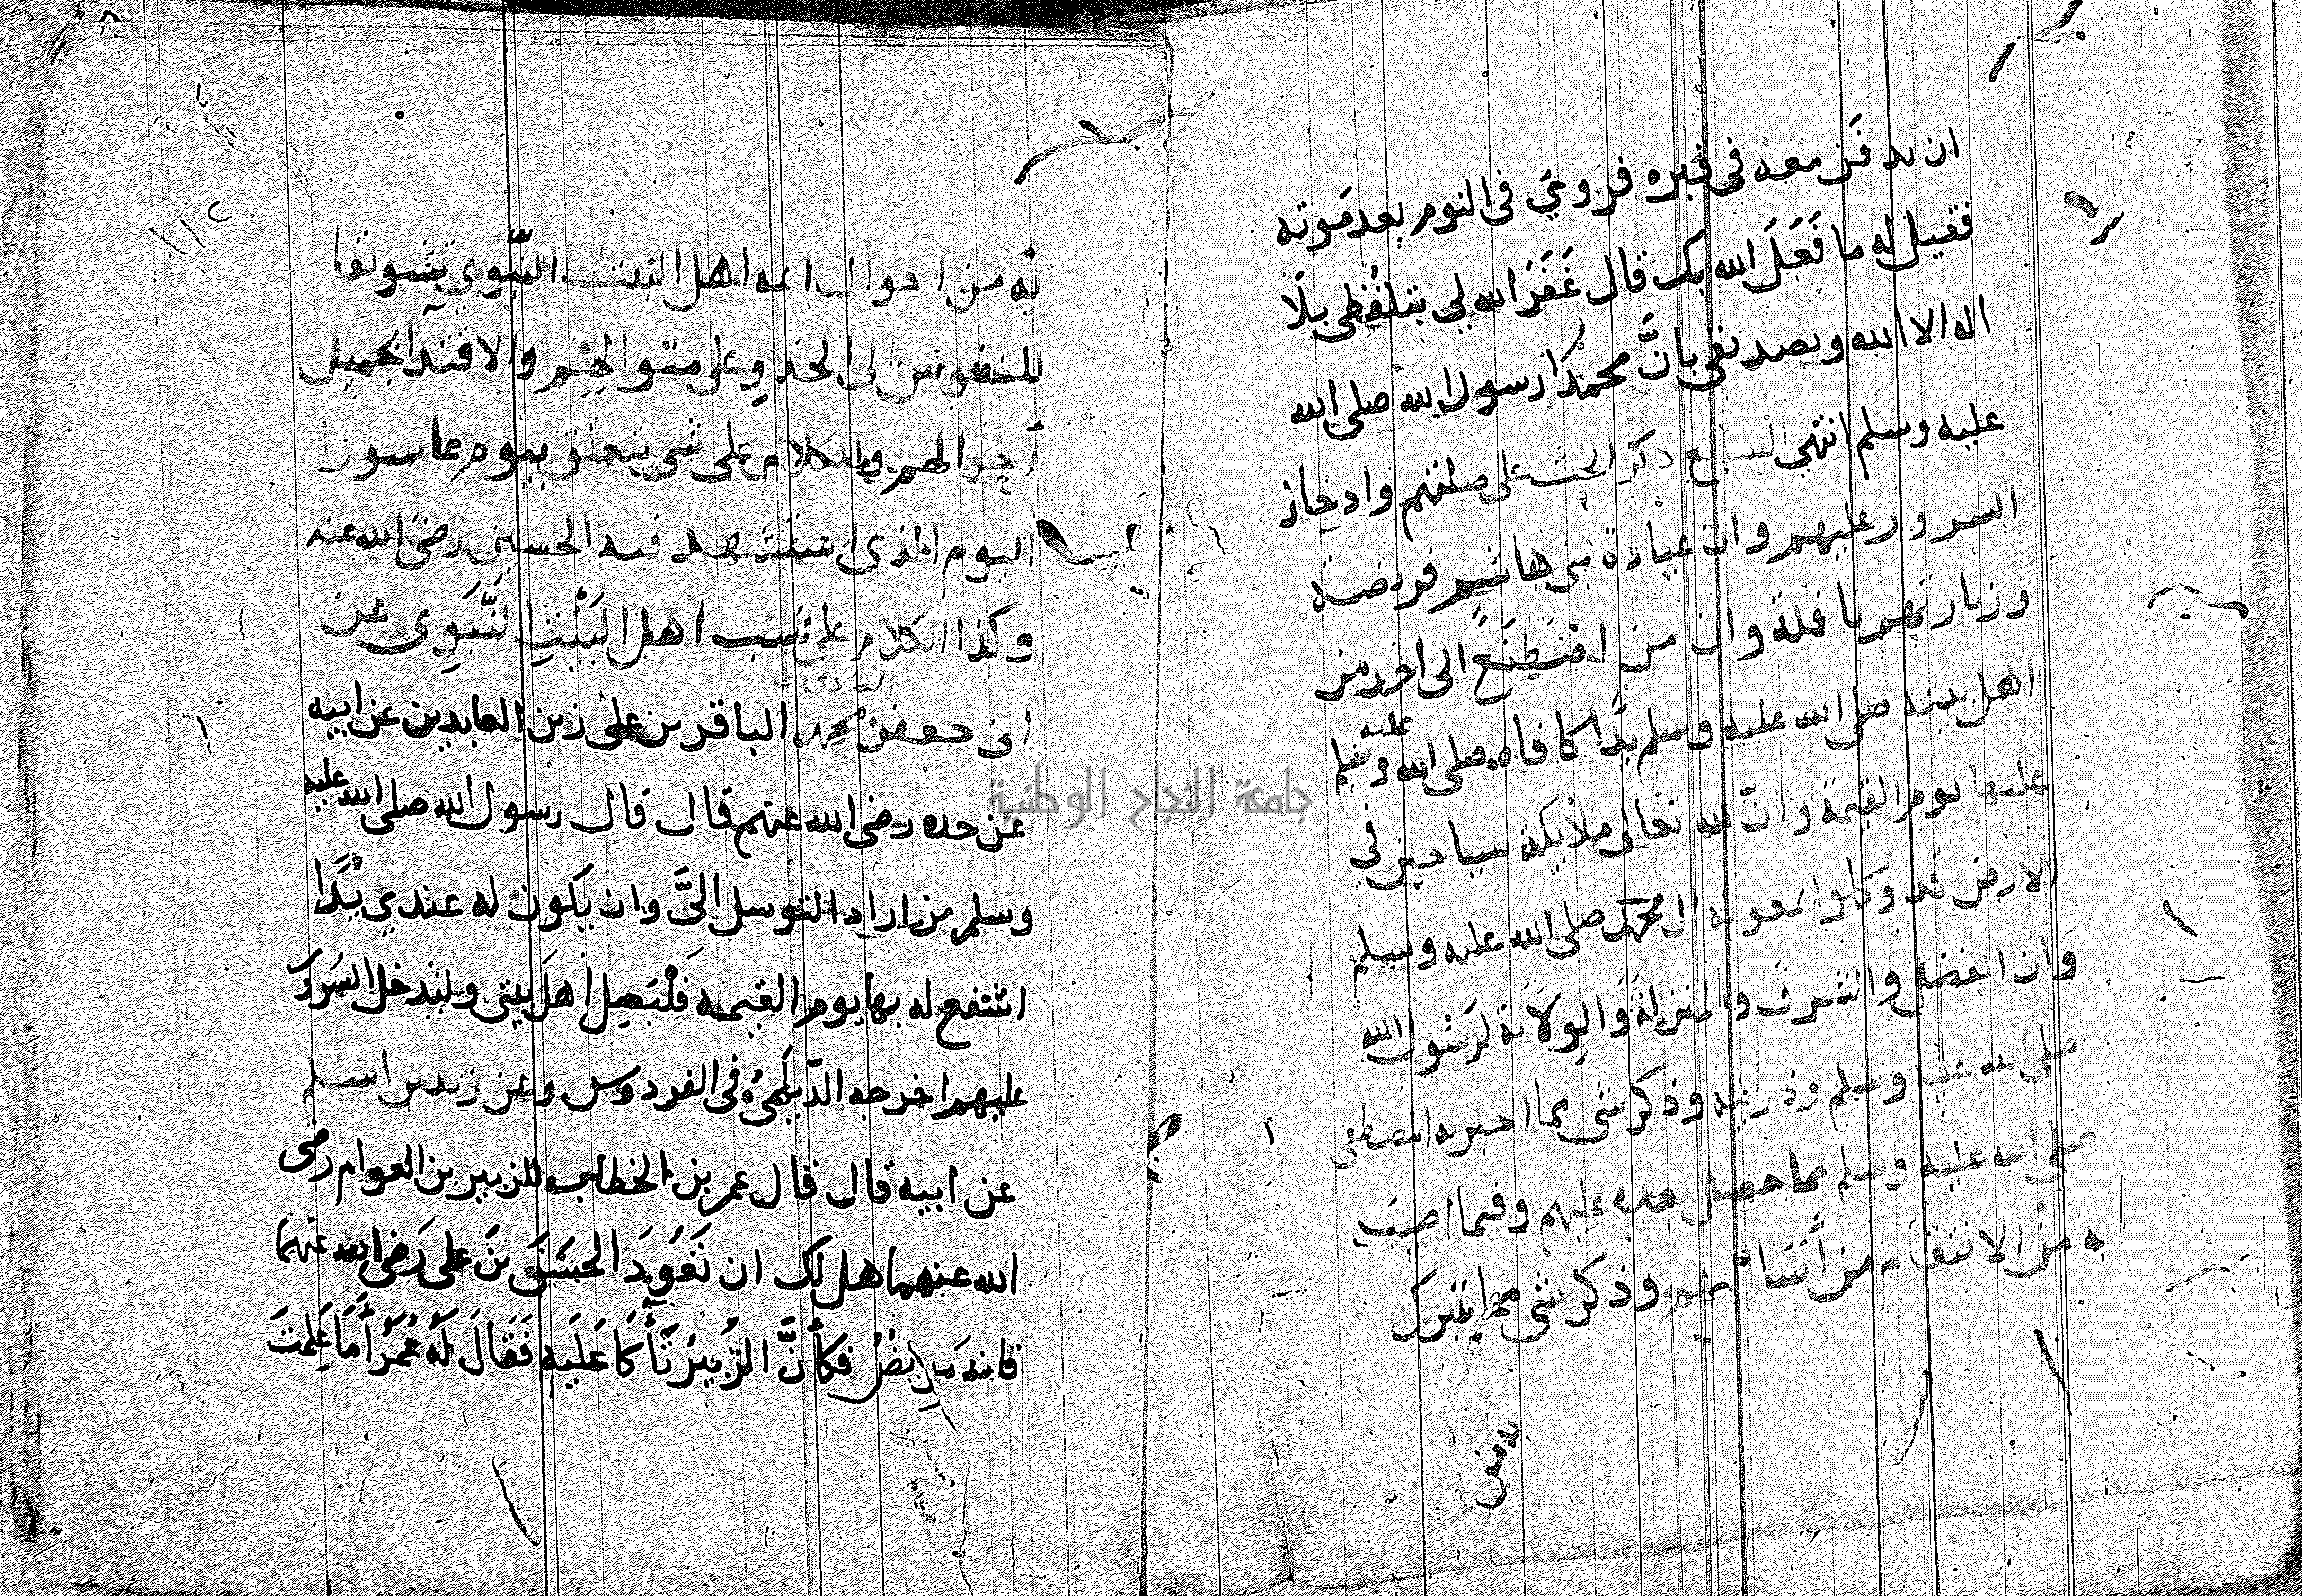 ان يدفن معه فى قبره فروءي فى النوم بعد موته
فقيل له ما فَعَلَ الله بك قال غَفَرَ الله لي بتلفظى بلا
اله الا الله وتصديقى بانَّ محمدا رسول الله صلى الله
عليه وسلم انتهي السابع ذكر الحث على صلتهم وادخال
السرور عليهم وان عيادة بنى هاشم فريضة
وزيارتهم نافلة وان من اصطنع الى احد من
اهل بيته صلى الله عليه وسلم يدًا كافاه صلى الله عليه وسلم
عليها يوم القيمة وان لله تعالى ملايكة سياحين فى
الارض قد وكلوا بمعونة ال محمد صلى الله عليه وسلم
وان الفضل والشرف والمنزلة والولاية لرسول الله
صلى الله عليه وسلم وذريته وذكر شى مما اخبر به المصطفى
صلى الله عليه وسلم مما حصل بعده عليهم وفيما اصيب
به من الانتقام من اساء اليهم وذكر شى مما يتبرك
١١٢
به من احوال ايمة اهل البيت النّبوي تشويقا
للنفوس الى الحذو على منوالهم والاقتدا بجميل
احوالهم والكلام على شى يتعلق بيوم عاشورا
اليوم الذى استشهد فيه الحسين رضى الله عنه
وكذا الكلام على نسب اهل البَيْتِ النَّبَوِى عن
الصادق
ابى جعفر محمد الباقر بن على زين العابدين عن ابيه
عن جده رضى الله عنهم قال قال رسول الله صلى الله عليه
وسلم من اراد التوسل الىَّ وان يكون له عندي يَدًا
انتفع له بها يوم القيمة فَلْيَصِلْ أهلَ بيتى وليدخل السُرورَ
عليهم اخرجه الدَّيلمىُ فى الفردوس وعن زيد بن اسلم
عن ابيه قال قال عمر بن الخطاب للزبير بن العوام رضى
الله عنهما هل لك ان نَعُودَ الحسَنَ بنَ على رَضى الله عنهما
فانه مريضٌ فكأنَّ الزُّبيرَ تَلَكَّأَ عَلَيهِ فَقَالَ لَهُ عُمَرُ أَمَا عَلِمتَ
جامعة النجاح الوطنية